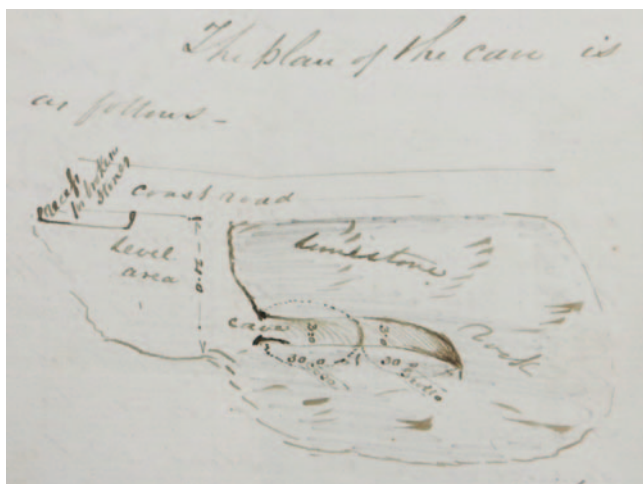 The plan of the cave is
as follows -
recess
for broken
stones
coast road
level
area
limestone
cave
3.0
3.0
30.0
30.0
Rock